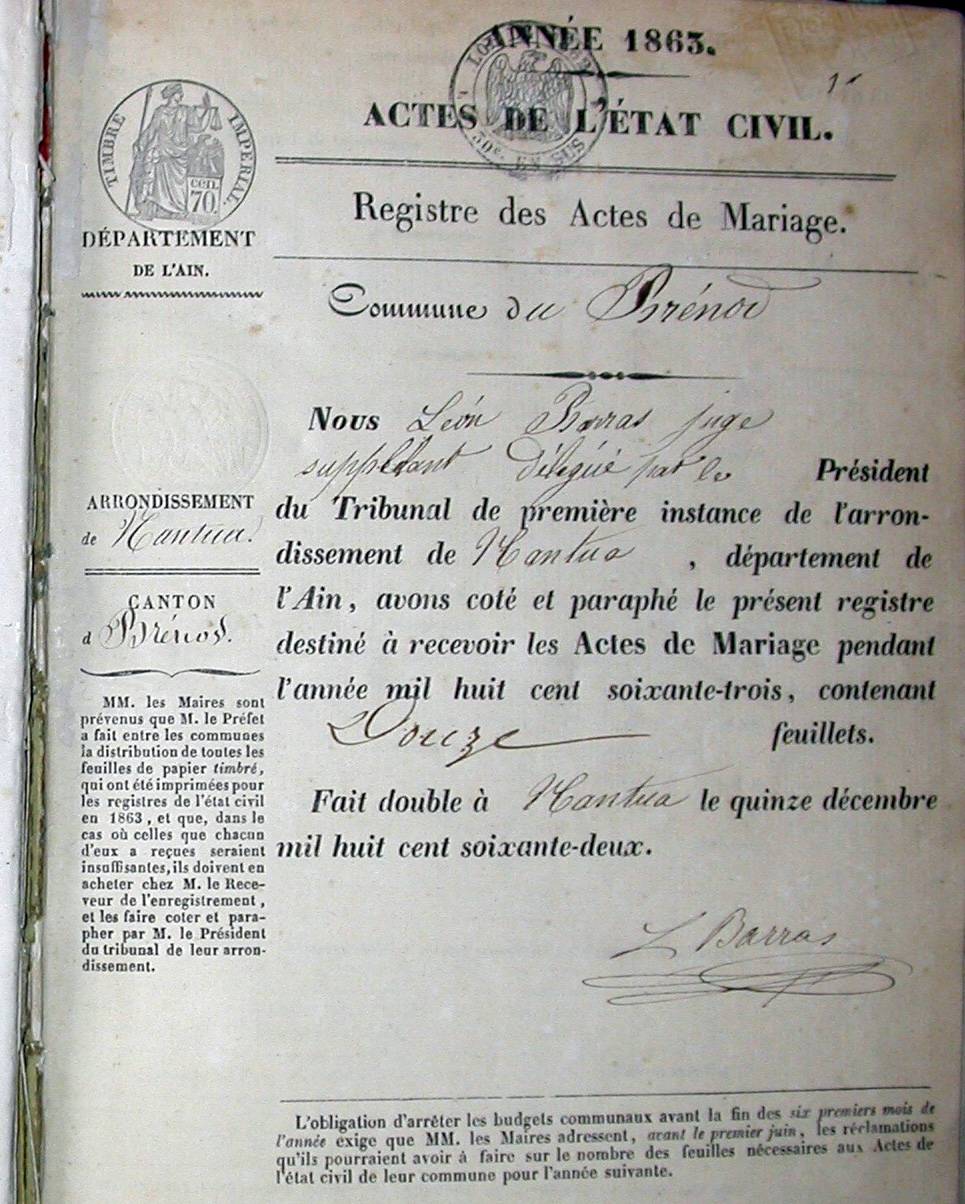 ANNÉE 1863.
1er
ACTES DE L'ÉTAT CIVIL.
50c. EN SUS
TIMBRE IMPERIAL
cen.
70.
Registre des Actes de Mariage.
DÉPARTEMENT
DE L'AIN.
Commune de Brénod
Nous Léon Barras juge
suppléant délégué par le Président
du Tribunal de première instance de l'arron-
dissement de Nantua, département de
l'Ain, avons coté et paraphé le présent registre
destiné à recevoir les Actes de Mariage pendant
l'année mil huit cent soixante-trois, contenant
Douze feuillets.
Fait double à Nantua le quinze décembre
mil huit cent soixante-deux.
L Barras
ARRONDISSEMENT
de Nantua.
CANTON
d Brénod.
MM. les Maires sont
prévenus que M. le Préfet
a fait entre les communes
la distribution de toutes les
feuilles de papier timbré,
qui ont été imprimées pour
les registres de l'état civil
en 1863, et que, dans le
cas où celles que chacun
d'eux a reçues seraient
insuffisantes, ils doivent en
acheter chez M. le Rece-
veur de l'enregistrement,
et les faire coter et para-
pher par M. le Président
du tribunal de leur arron-
dissement.
L'obligation d'arrêter les budgets communaux avant la fin des six premiers mois de
l'année exige que MM. les Maires adressent, avant le premier juin, les réclamations
qu'ils pourraient avoir à faire sur le nombre des feuilles nécessaires aux Actes de
l'état civil de leur commune pour l'année suivante.